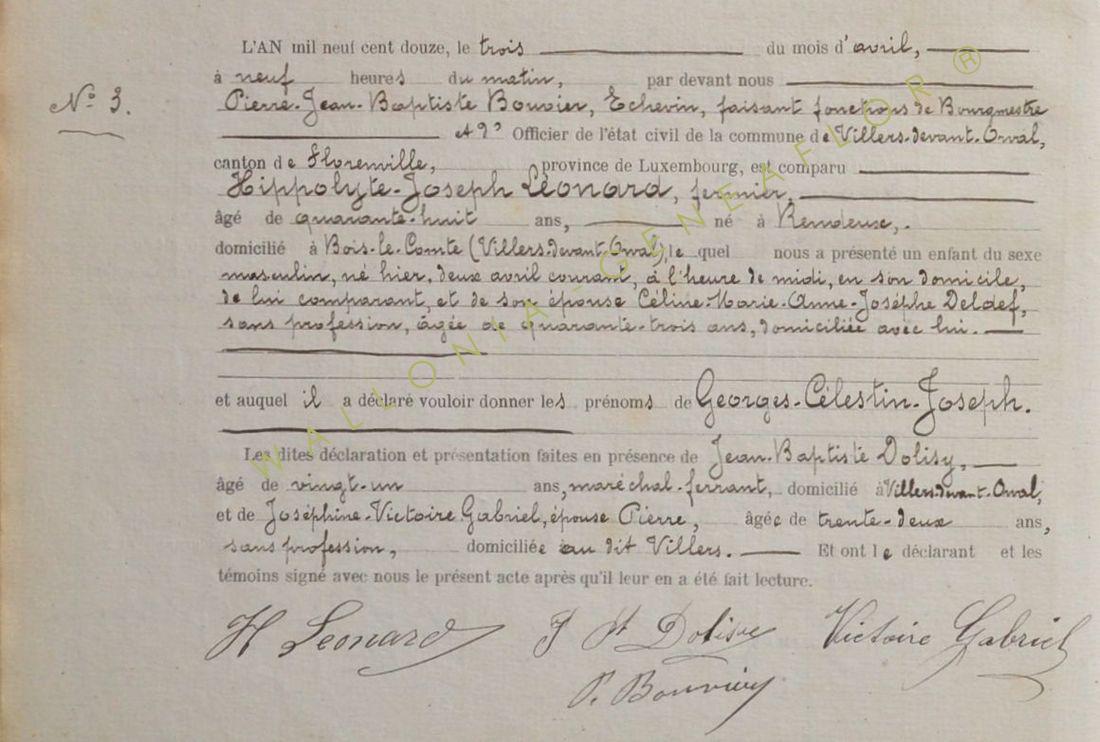 L'AN mil neuf cent douze, le trois du mois d'avril,
à neuf heures du matin, par devant nous
Nº 3.
Pierre-Jean-Baptiste Bouvier, Echevin, faisant fonctions de Bourgmestre
Officier de l'état civil de la commune de Villers-devant-Orval,
canton de Florenville, province de Luxembourg, est comparu
Hippolyte-Joseph Léonard, fermier,
âgé de quarante-huit ans, né à Rendeux,
domicilié à Bois-le-Comte (Villers-devant-Orval), le quel nous a présenté un enfant du sexe
masculin, né hier, deux avril courant, à l'heure de midi, en son domicile,
de lui comparant, et de son épouse Céline-Marie-Anne-Josèphe Deldef,
sans profession, âgée de quarante-trois ans, domiciliée avec lui.
et auquel il a déclaré vouloir donner les prénoms de Georges-Célestin-Joseph.
Les dites déclaration et présentation faites en présence de Jean-Baptiste Dolisy,
âgé de vingt-un ans, maréchal-ferrant, domicilié à Villers-devant-Orval,
et de Joséphine-Victoire Gabriel, épouse Pierre, âgée de trente-deux ans,
sans profession, domiciliée au dit Villers. Et ont le déclarant et les
témoins signé avec nous le présent acte après qu'il leur en a été fait lecture.
H Leonard J Bt Dolisy Victoire Gabriel
P. Bouvier
WALLONIA GENEAFLOR ®